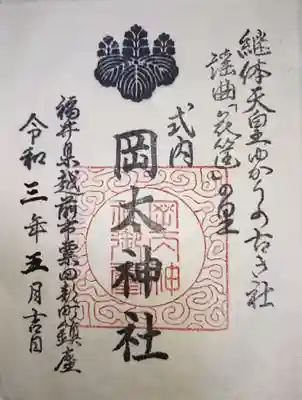 継体天皇ゆかりの古き社
謡曲「花筐」の里
式内
岡太神社
福井県越前市粟田部町鎮座
令和三年五月吉日